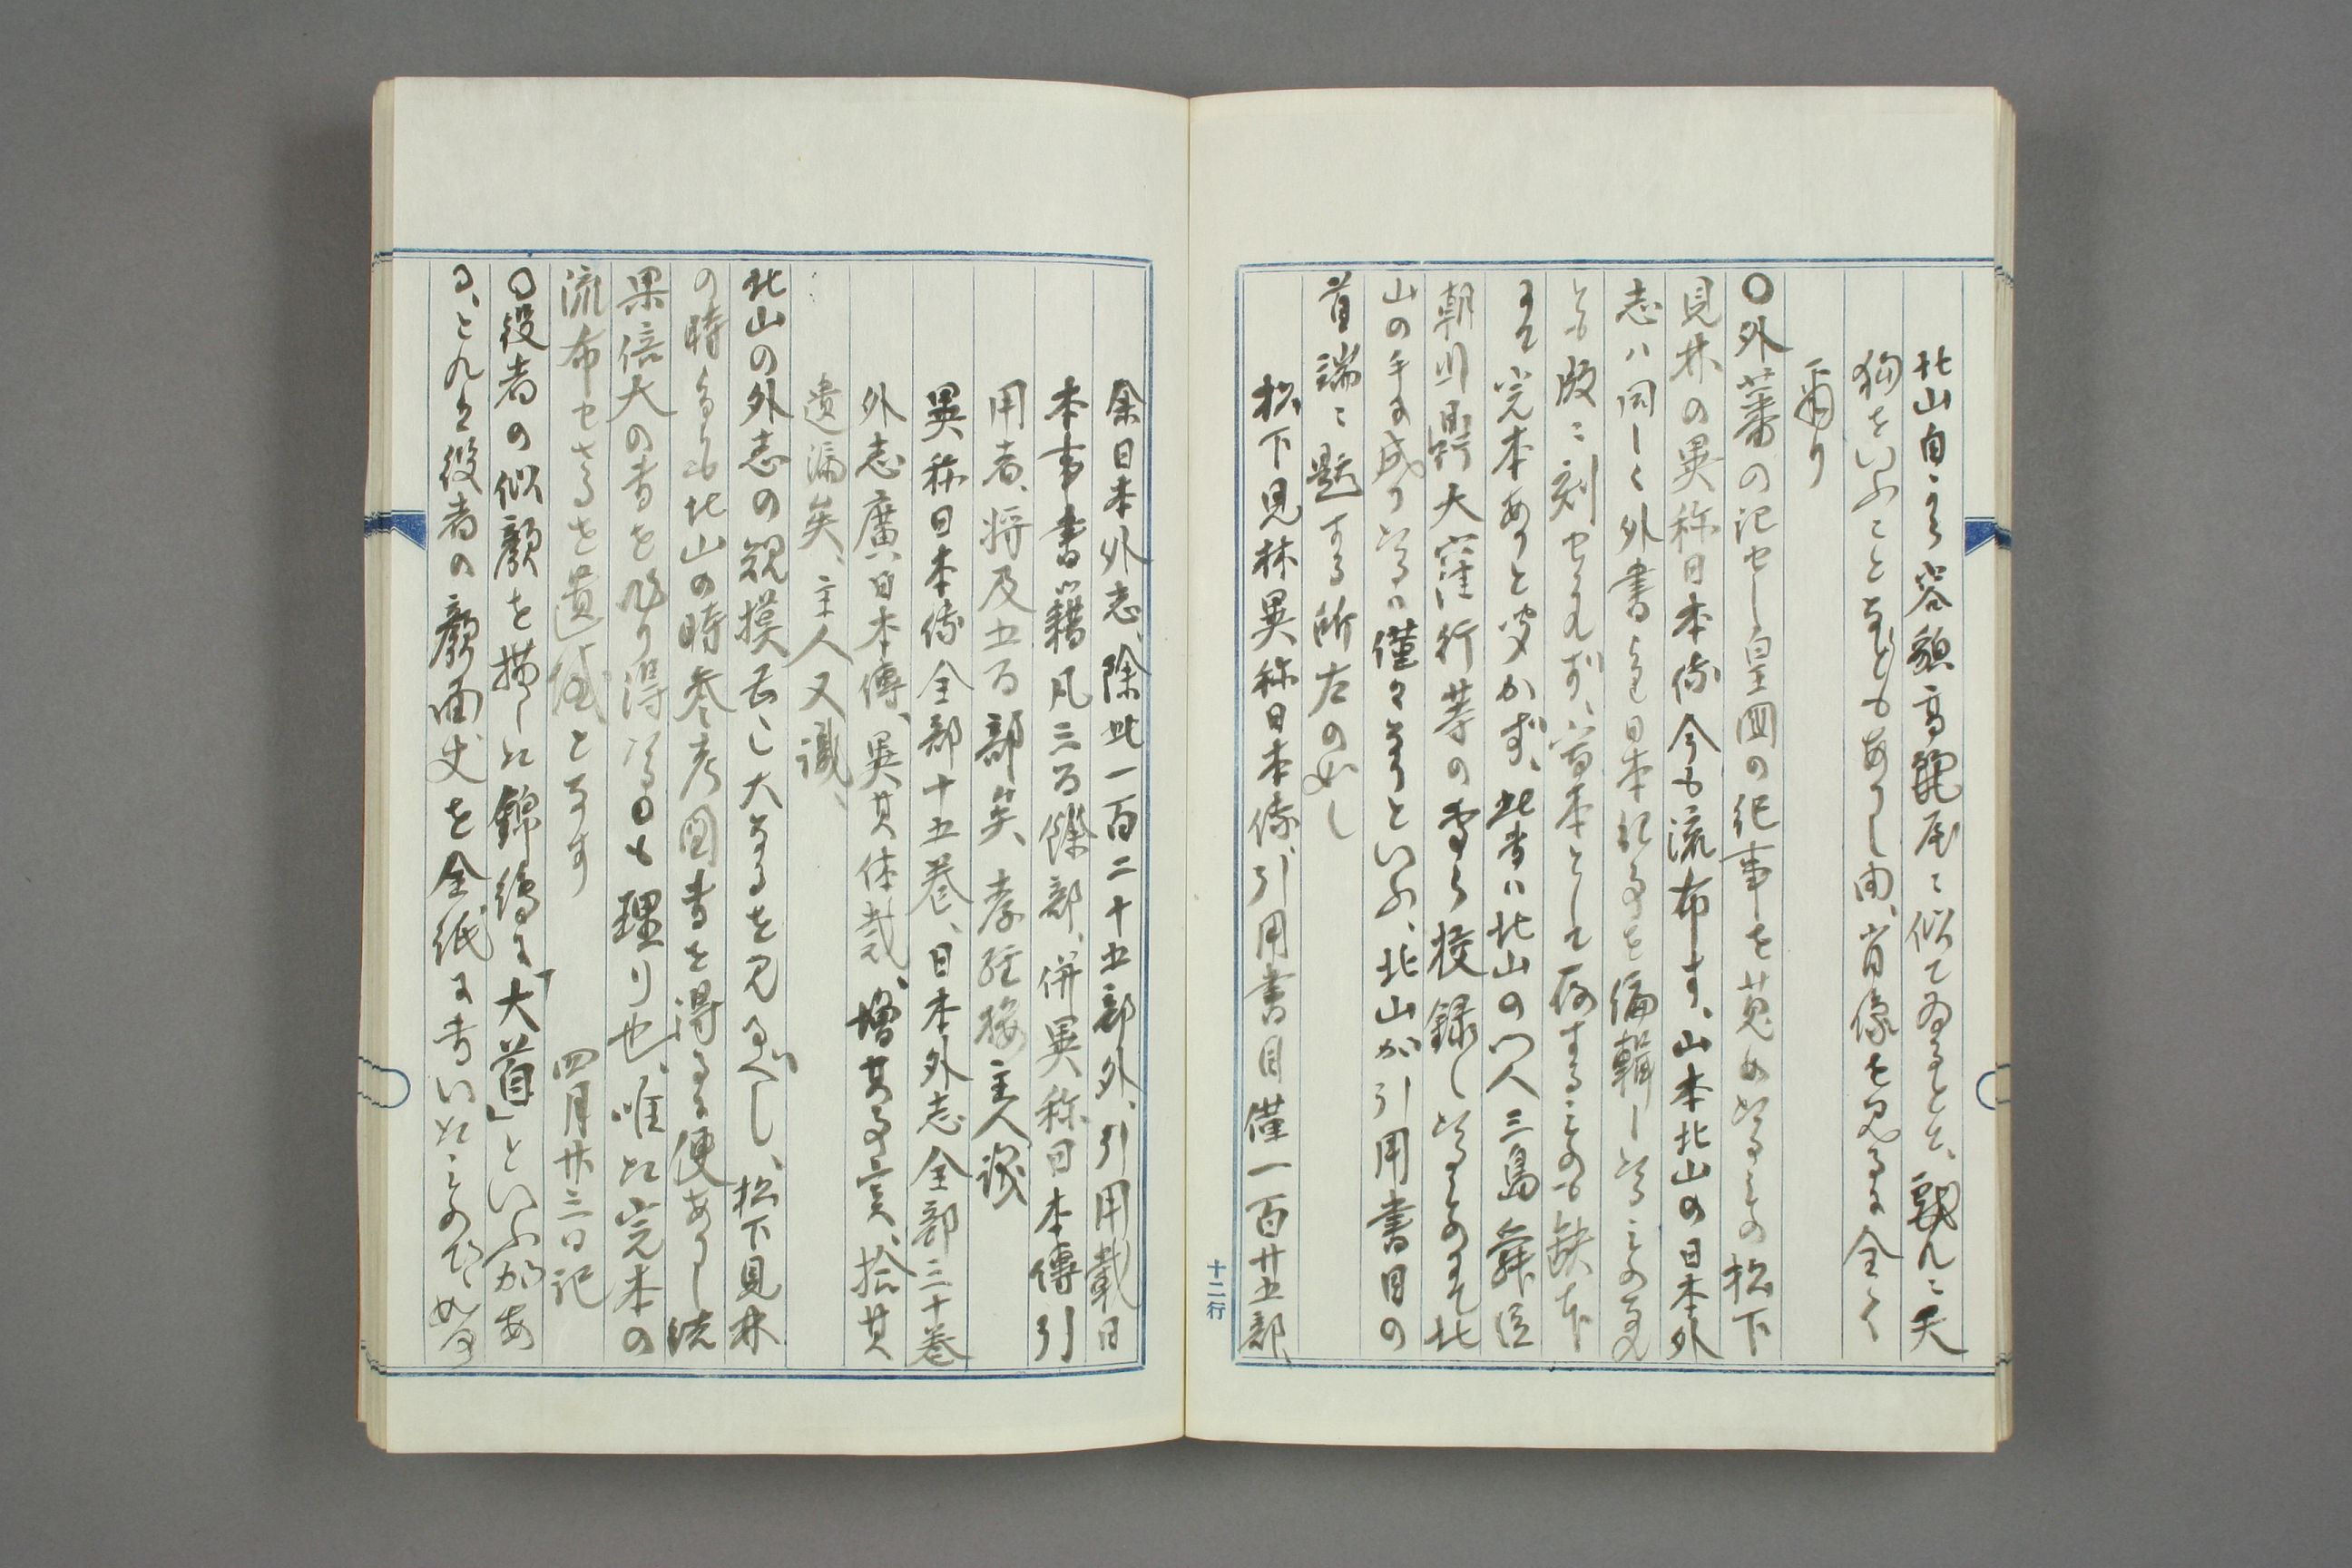 北山自ら容貌高麗屋に似てゐるとて、戯れに天
狗をいふことなどもありし由、肖像を見るに全く
爾り
〇外蕃の記せし皇国の紀事を蒐めたるもの松下
見林の異称日本伝今も流布す、山本北山の日本外
志ハ同しく外書より日本に係るを編輯したるものなれ
とも版に刻せられず、写本として存するものも缺本
にて完本ありと聞かず、此書ハ北山の門人三島舜臣
朝川鼎大窪行等の専ら校録したるものにて北
山の手に成りたるハ僅々なりといふ、北山が引用書目の
首端に題する所左の如し
松下見林異称日本伝、引用書目僅一百廿五部、
十二行
余日本外志、除此一百二十五部外、引用載日
本事書籍凡三百餘部、併異称日本傳引
用者、将及五百部矣 孝経楼主人識
異称日本伝全部十五巻、日本外志全部三十巻
外志廣日本傳、異其体裁、増其事実、拾其
遺漏矣、主人又識、
北山の外志の規模甚し大なるを見るべし、松下見林
の時よりも北山の時参考図書を得るに便ありし結
果倍大の書を作り得たるも理り也、唯た完本の
流布せざるを遺憾となす 四月廿三日記
〇役者の似顔を描した錦絵に「大首」といふがあ
る、これは役者の顔面丈を全紙に書いたものだ、